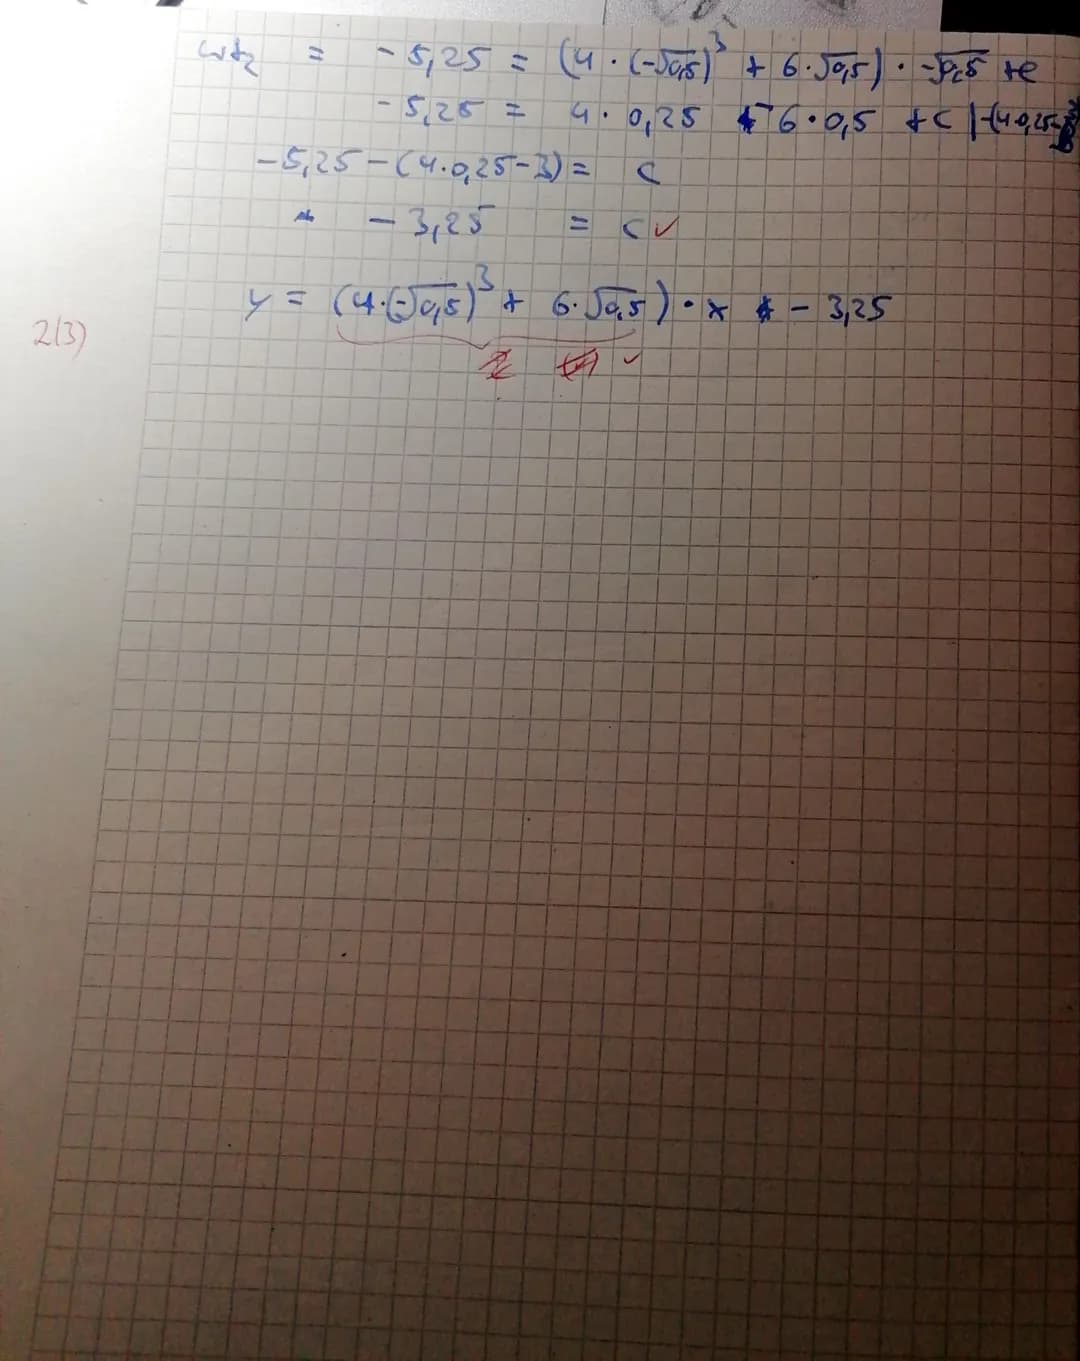 wtz = -5,25 = (4 · (-√0,5)³ + 6·√0,5) · -√0,5 +c
-5,25 = 4 · 0,25 - 6·0,5 +c |-(4·0,25-
-5,25-(4·0,25-3) = c
-3,25 = c ✓
y = (4·(-√0,5)³ + 6·√0,5) · x - 3,25
2(3)
✓